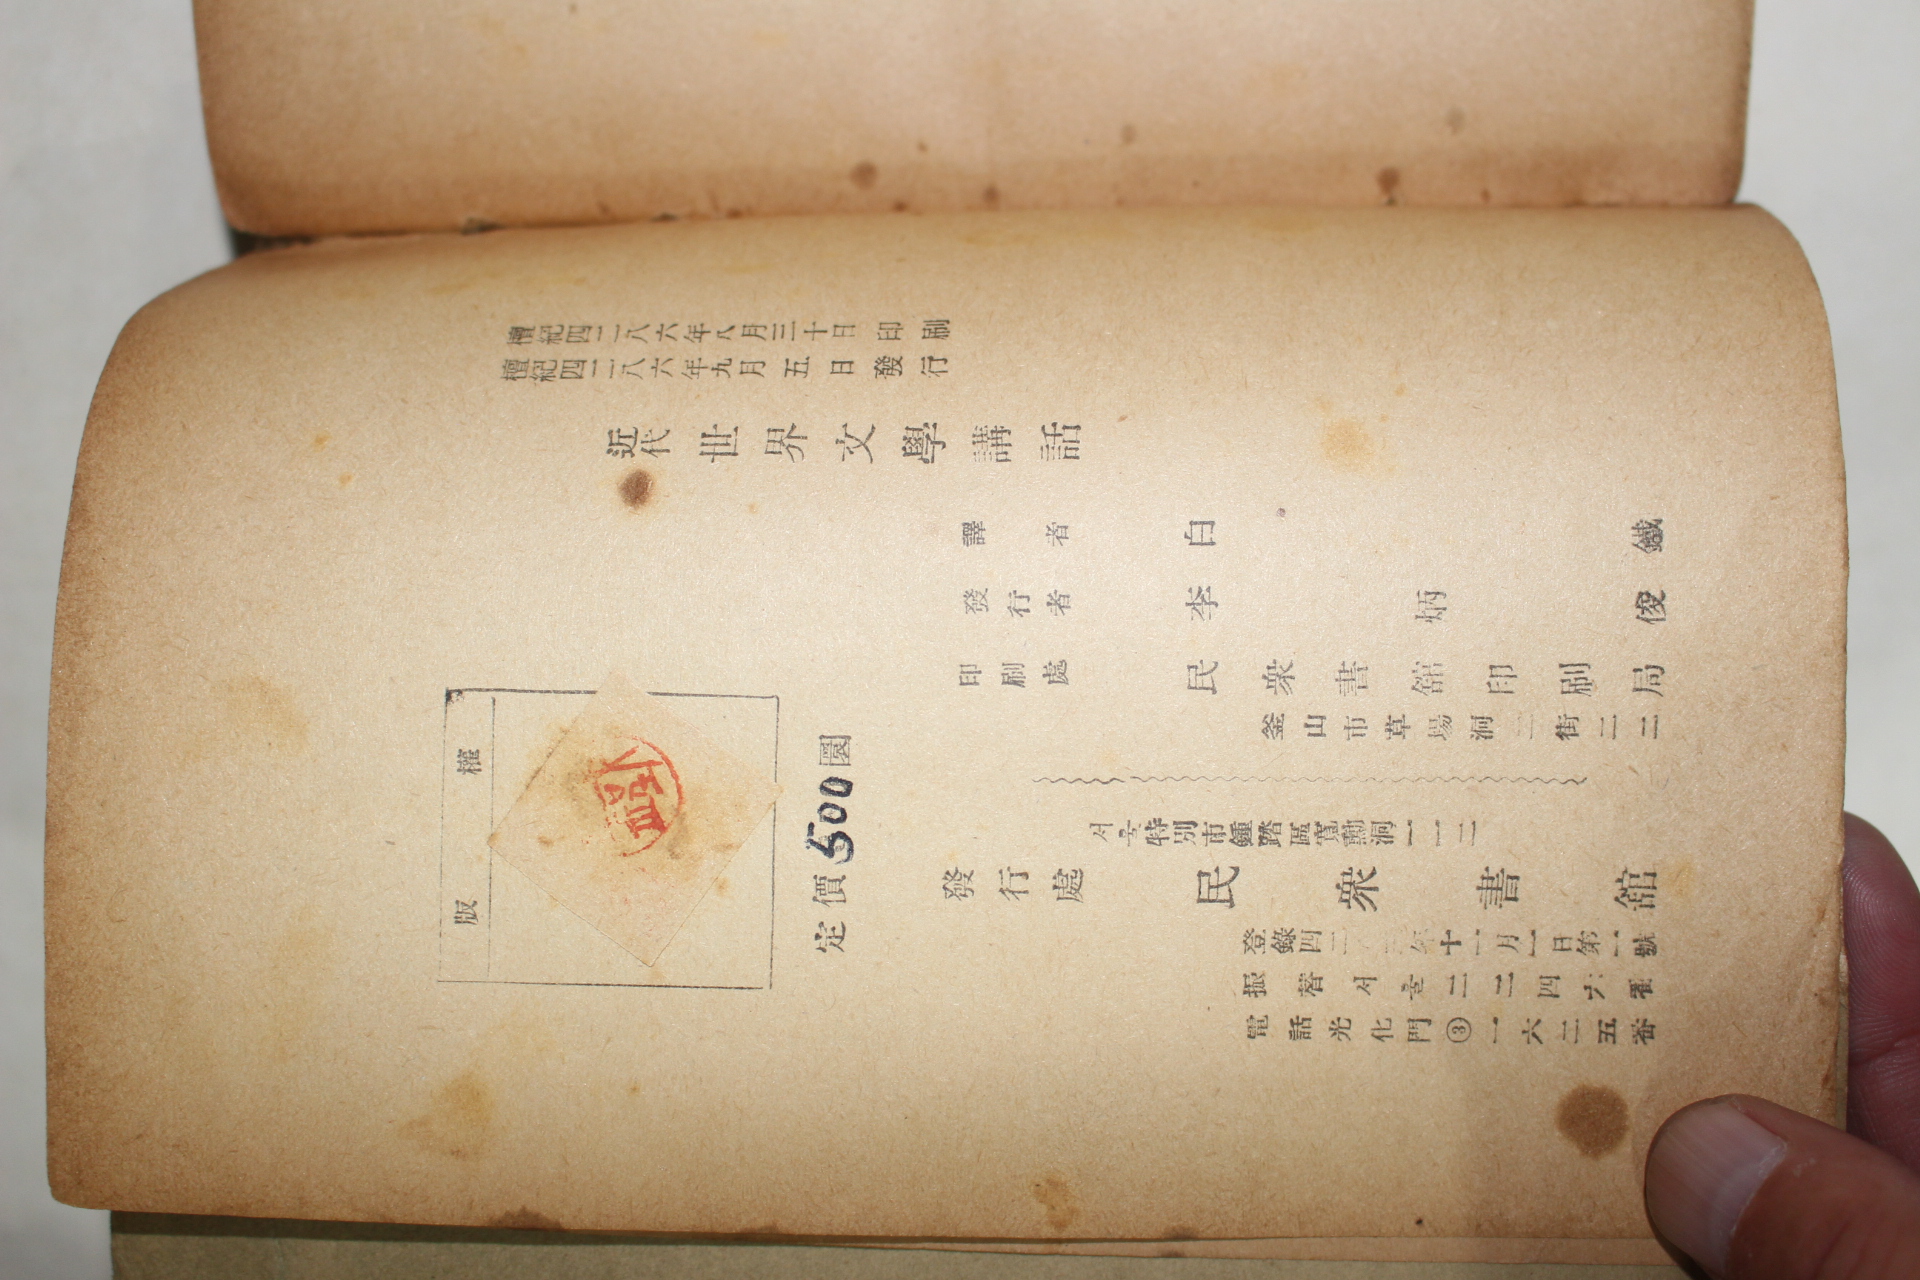 檀紀四二八六年八月三十日 印刷
檀紀四二八六年九月五日 發行
近代世界文學講話
譯者 白鐵
發行者 李炳俊
印刷處 民衆書舘印刷局
釜山市草場洞二街二二
版權
定價500圜
서울特別市鍾路區寬勳洞一一二
發行處 民衆書舘
登錄四二 年十一月一日第一號
振替서울二二四六番
電話光化門③一六二五番